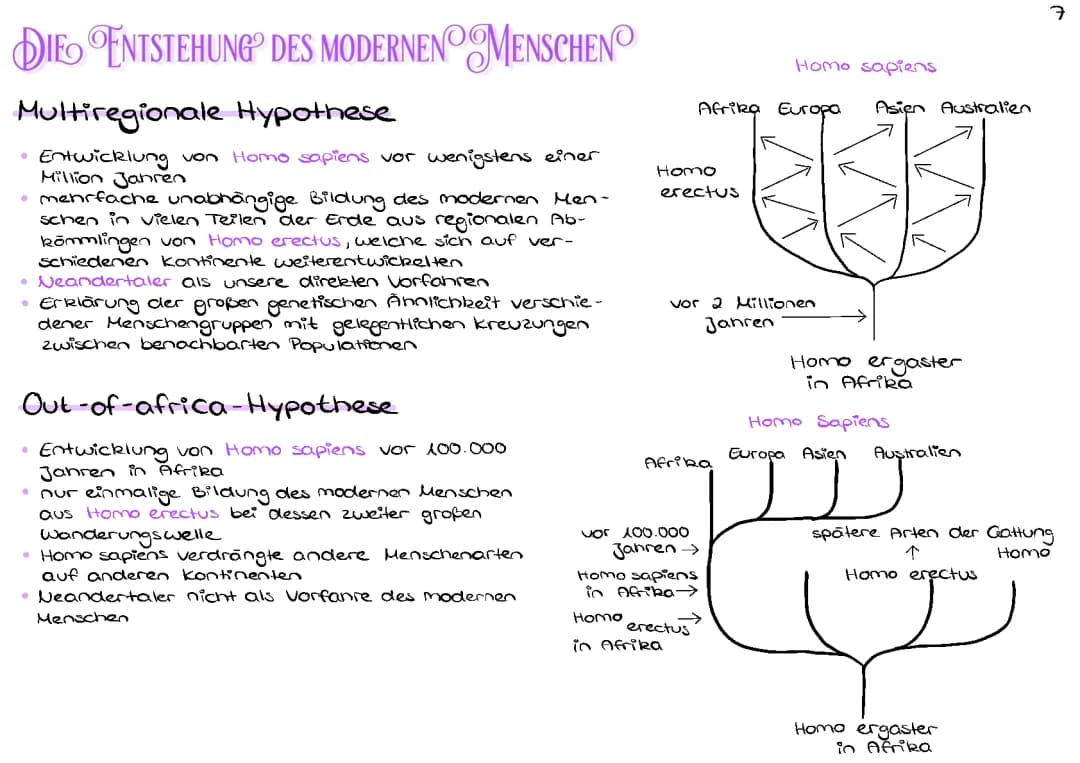 7
DIE ENTSTEHUNG DES MODERNEN MENSCHEN
Multiregionale Hypothese
• Entwicklung von Homo sapiens vor wenigstens einer
Million Jahren
• mehrfache unabhängige Bildung des modernen Men-
schen in vielen Teilen der Erde aus regionalen Ab-
kömmlingen von Homo erectus, welche sich auf ver-
schiedenen Kontinente weiterentwickelten
• Neandertaler als unsere direkten Vorfahren
• Erklärung der großen genetischen Ähnlichkeit verschie-
dener Menschengruppen mit gelegentlichen Kreuzungen
zwischen benachbarten Populationen
Homo sapiens
Afrika Europa Asien Australien
Homo
erectus
vor 2 Millionen
Jahren
Homo ergaster
in Afrika
Out-of-africa-Hypothese
• Entwicklung von Homo sapiens vor 100.000
Jahren in Afrika
• nur einmalige Bildung des modernen Menschen
aus Homo erectus bei dessen zweiter großen
Wanderungswelle
• Homo sapiens verdrängte andere Menschenarten
auf anderen Kontinenten
• Neandertaler nicht als Vorfahre des modernen
Menschen
Homo Sapiens
Afrika Europa Asien Australien
vor 100.000
Jahren →
Homo sapiens
in Afrika →
Homo erectus →
in Afrika
spätere Arten der Gattung
Homo
↑
Homo erectus
Homo ergaster
in Afrika